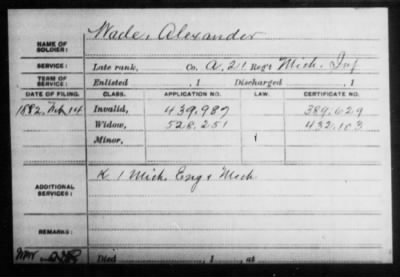 Wade, Alexander
NAME OF SOLDIER:
SERVICE: Late rank, Co. A, 21 Reg't Mich. Inf
TERM OF SERVICE: Enlisted , 1 Discharged , 1
DATE OF FILING. CLASS. APPLICATION NO. LAW. CERTIFICATE NO.
1882, Feb 14 Invalid, 439.987 389.629
Widow, 528.251 432.103
Minor,
ADDITIONAL SERVICES: K 1 Mich. Eng & Mech
REMARKS:
Died , 1 , at